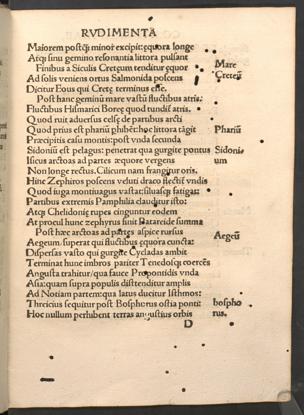 RVDIMENTA
Maiorem postq̃ minor excipit: equora longe
Atq̃ sinu gemino resonantia littora pulsant
Finibus a Siculis Cretęum tenditur equor
Mare
Ad solis veniens ortus Salmonida poscens
Creteũ
Dicitur Eous qui Cretę terminus esse.
Post hanc geminũ mare vastũ fluctibus atris:
Fluctibus Hismarici Boreę quod tundit atris.
Quod ruit aduersus celsę de partibus arcti
Quod prius est phariũ phibẽt: hoc littora tãgit
Phariũ
Præcipitis casu montis: post vnda secunda
Sidoniũ est pelagus: penetrat qua gurgite pontus
Sidonis
Iseus arctoas ad partes æquore vergens
um
Non longe rectus. Cilicum nam frangitur oris.
Hinc Zephiros poscens veluti draco flectit vndis
Quod iuga montiuagus vastat: siluasq̃ fatigat:
Partibus extremis Pamphilia clauditur isto:
Atq̃ Chelidonię rupes cinguntur eodem
At procul hunc zephyrus finit Patareide summa
Post hæc arctoas ad partes aspice rursus
Aegeum. superat qui fluctibus equora cuncta:
Aegeũ
Dispersas vasto qui gurgite Cycladas ambit
Terminat hunc imbros pariter Tenedosq̃ coercẽs
Angusta trahitur: qua fauce Propontidis vnda
Asia: quam supra populis distenditur amplis
Ad Notiam partem: qua latus ducitur Isthmos:
Thricius sequitur post Bosphorus ostia ponti:
bospho
Hoc nullum perhibent terras angustius orbis
rus.
D